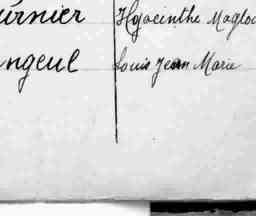 urnier Hyacinthe Magloi
ngeul Louis Jean Marie